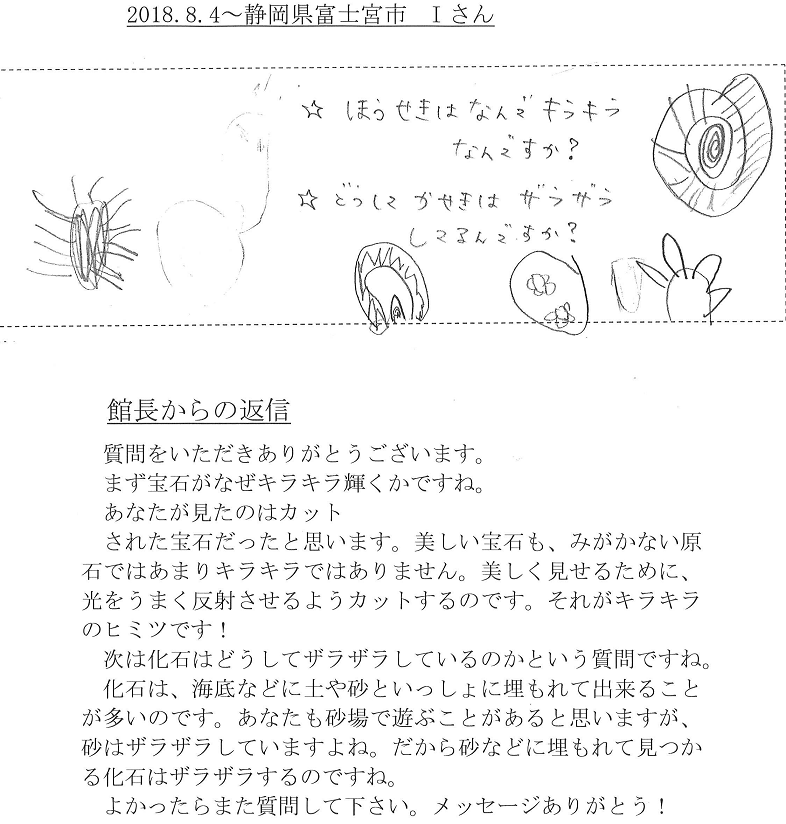 2018.8.4～静岡県富士宮市　Iさん
☆ ほうせきは なんで キラキラ
なんですか？
☆ どうして かせきは ザラザラ
してるんですか？
館長からの返信
質問をいただきありがとうございます。
まず宝石がなぜキラキラ輝くかですね。
あなたが見たのはカット
された宝石だったと思います。美しい宝石も、みがかない原
石ではあまりキラキラではありません。美しく見せるために、
光をうまく反射させるようカットするのです。それがキラキラ
のヒミツです！
次は化石はどうしてザラザラしているのかという質問ですね。
化石は、海底などに土や砂といっしょに埋もれて出来ること
が多いのです。あなたも砂場で遊ぶことがあると思いますが、
砂はザラザラしていますよね。だから砂などに埋もれて見つか
る化石はザラザラするのですね。
よかったらまた質問して下さい。メッセージありがとう！